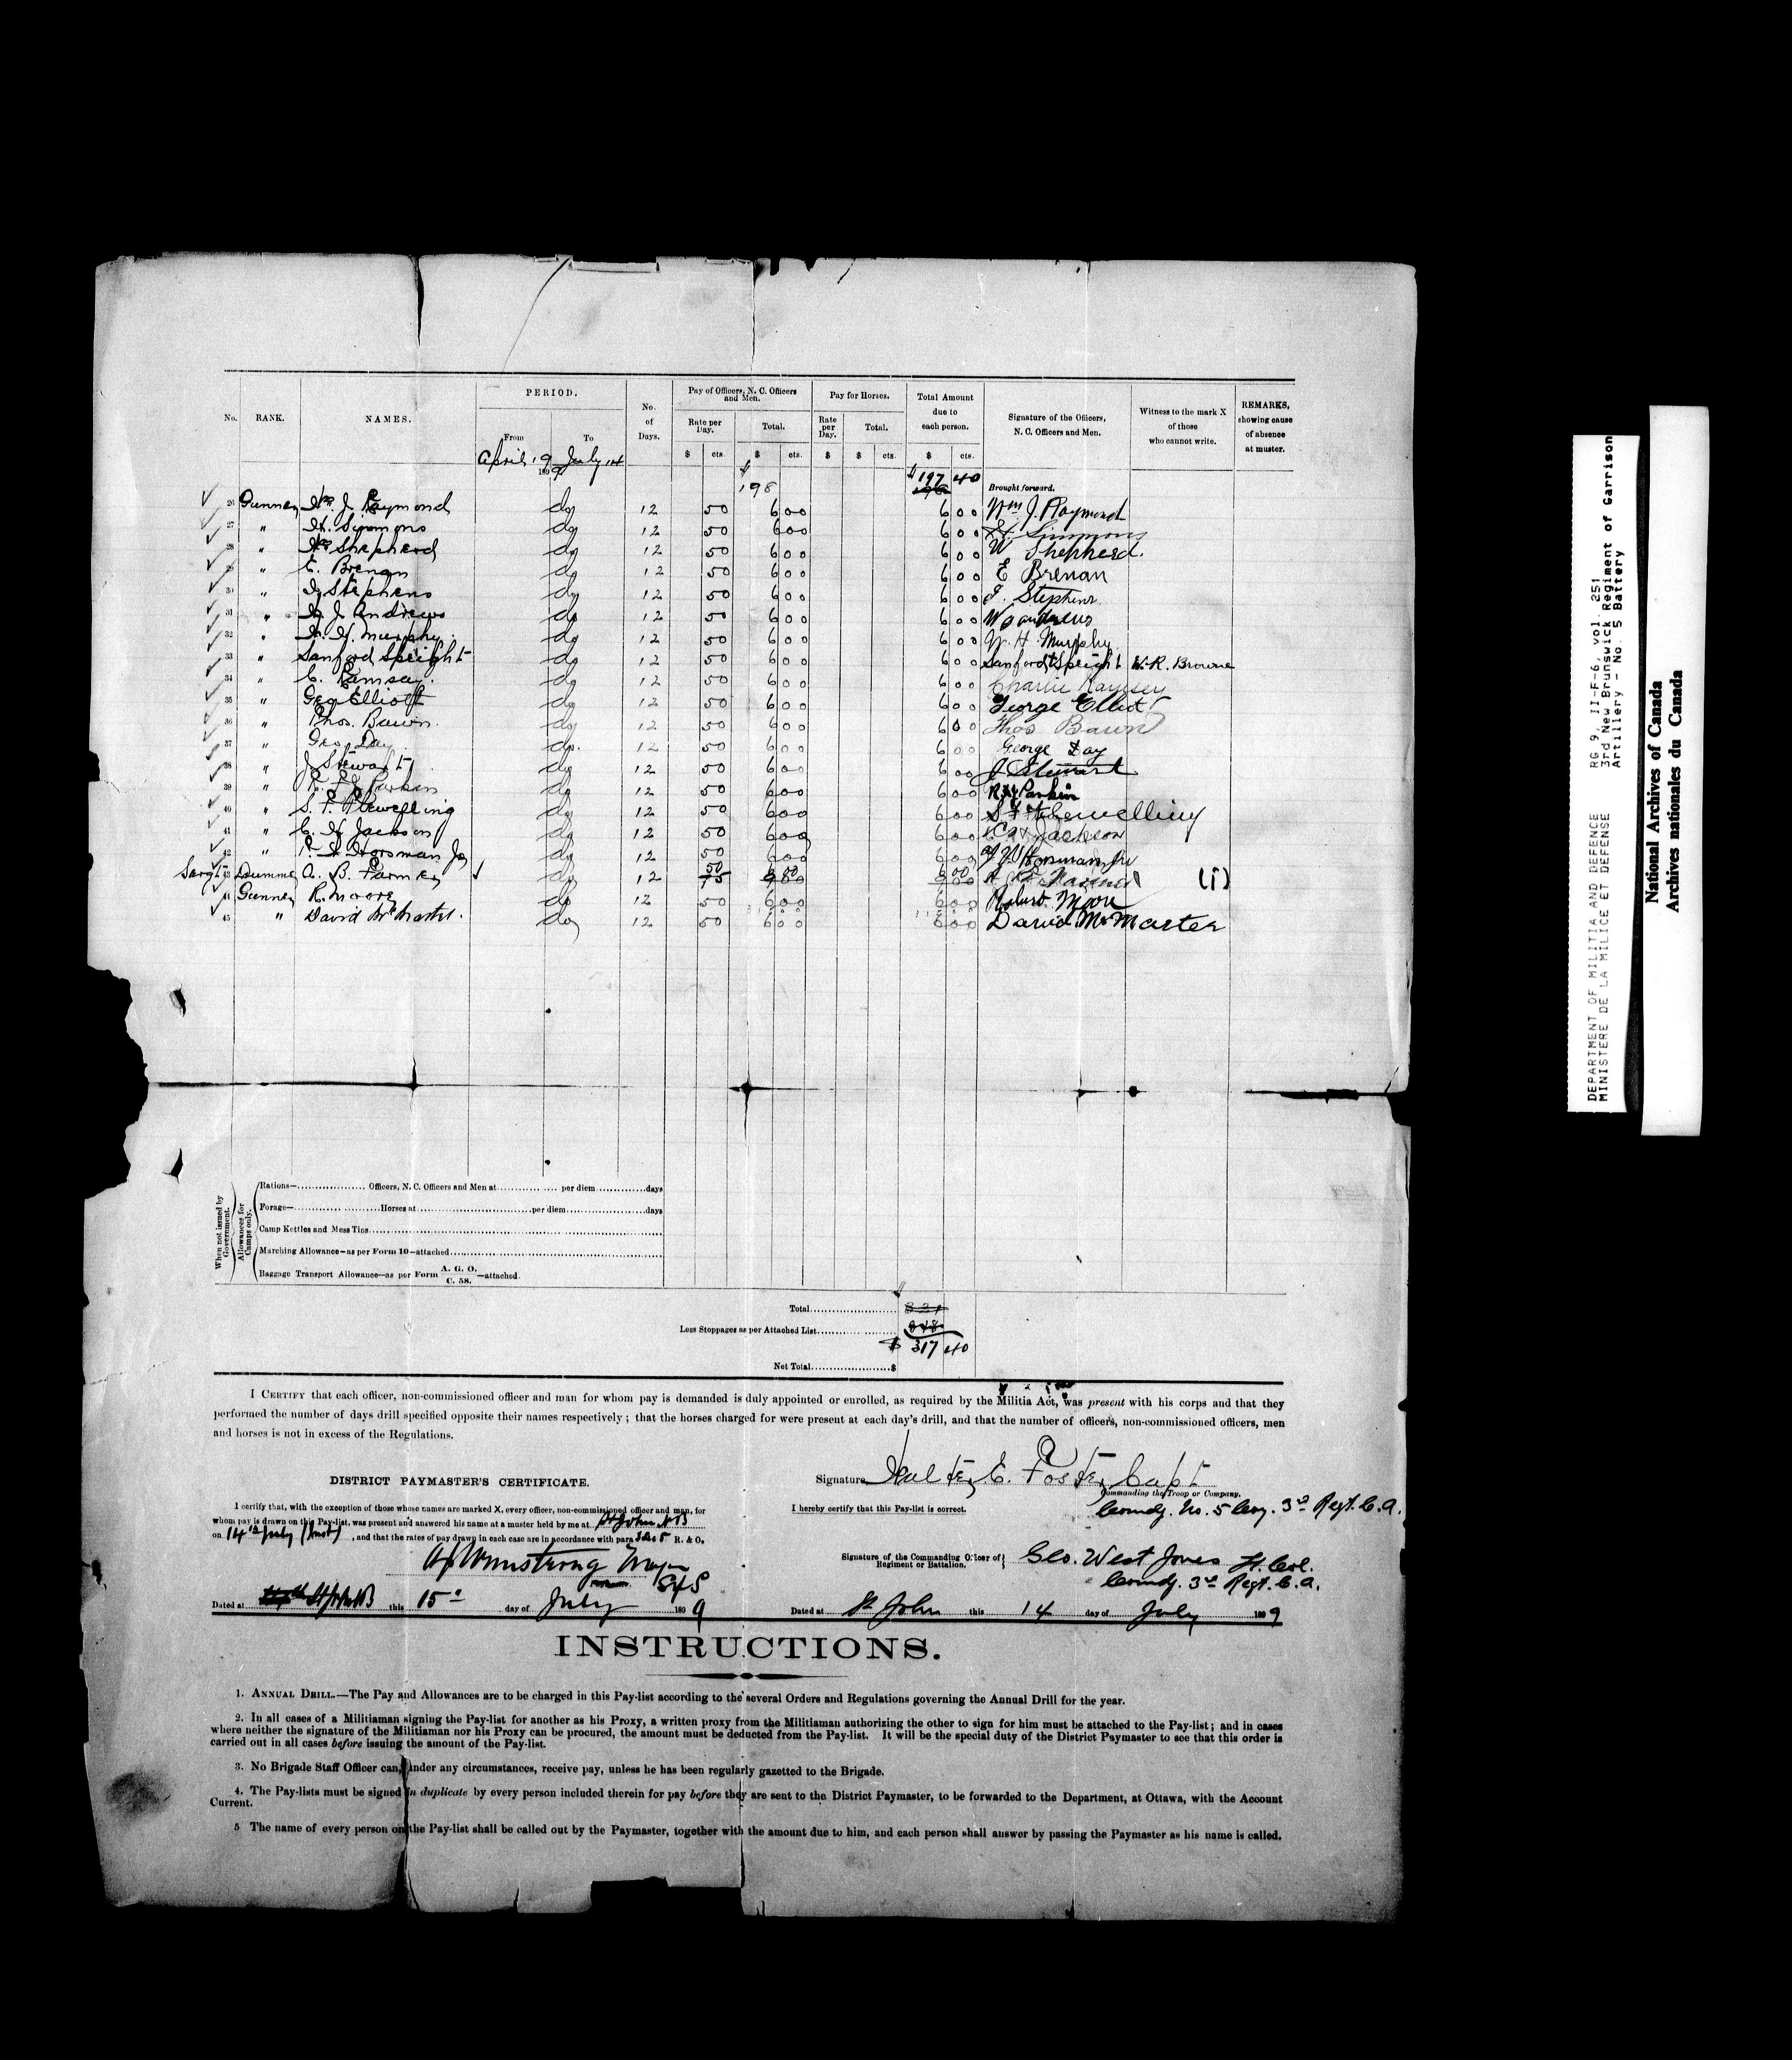 PERIOD.
Pay of Officers, N. C. Officers and Men.
Pay for Horses.
Total Amount due to each person.
No.
RANK.
NAMES.
No. of Days.
Rate per Day.
Total.
Rate per Day.
Total.
Signature of the Officers, N. C. Officers and Men.
Witness to the mark X of those who cannot write.
REMARKS, showing cause of absence at muster.
From
To
April 19 July 14
1899
$ cts. $ cts. $ $ cts. $ cts.
$ 198 $ 197 40 Brought forward.
26 Gunner Wm. J. Raymond do 12 50 6 00 6 00 Wm J. Raymond
27 " H. Simmons do 12 50 6 00 6 00 H. Simmons
28 " Wm Shepherd do 12 50 6 00 6 00 W Shepherd.
29 " E. Brenan do 12 50 6 00 6 00 E Brenan
30 " J Stephens do 12 50 6 00 6 00 J. Stephens
31 " W J Andrews do 12 50 6 00 6 00 W J Andrews
32 " W. H. Murphy. do 12 50 6 00 6 00 W. H. Murphy.
33 " Sanford Speight do 12 50 6 00 6 00 Sanford + Speight W. R. Browne
34 " C. Ramsay. do 12 50 6 00 6 00 Charlie Ramsey
35 " Geo Elliott do 12 50 6 00 6 00 George Elliot
36 " Thos. Bawn. do 12 50 6 00 6 00 Thos Bawn
37 " Geo. Day do. 12 50 6 00 6 00 George Day
38 " J Stewart do 12 50 6 00 6 00 J Stewart
39 " R. F. J Parkin do 12 50 6 00 6 00 R F J Parkin
40 " S. F. Flewelling do 12 50 6 00 6 00 S F Flewelling
41 " C. H Jackson do 12 50 6 00 6 00 C H Jackson
42 " Horsman Jr do 12 50 6 00 6 00 Horsman Jr
Sergt 43 A. B. Farmer do 12 50 75 9 00 9 00 (1)
44 Gunner R. Moore do 12 50 6 00 6 00 Robert Moore
45 " David McMaster. do 12 50 6 00 6 00 David McMaster
When not issued by Government.
Allowances for Camps only.
Rations— Officers, N. C. Officers and Men at per diem days
Forage— Horses at per diem days
Camp Kettles and Mess Tins
Marching Allowance—as per Form 10—attached
Baggage Transport Allowance—as per Form A. G. O. C. 58. —attached.
Total 321
Less Stoppages as per Attached List
$ 317 40
Net Total $
I CERTIFY that each officer, non-commissioned officer and man for whom pay is demanded is duly appointed or enrolled, as required by the Militia Act, was present with his corps and that they
performed the number of days drill specified opposite their names respectively; that the horses charged for were present at each day's drill, and that the number of officers, non-commissioned officers, men
and horses is not in excess of the Regulations.
DISTRICT PAYMASTER'S CERTIFICATE.
I certify that, with the exception of those whose names are marked X, every officer, non-commissioned officer and man, for
whom pay is drawn on this Pay-list, was present and answered his name at a muster held by me at St John NB
on 14th July (Inst), and that the rates of pay drawn in each case are in accordance with para R. & O.
Armstrong Major
Dated at St John NB this 15th day of July 1899
Signature Walter E. Foster Capt
Commanding the Troop or Company.
I hereby certify that this Pay-list is correct.
Comdg. No. 5 Coy. 3rd Regt. C. A.
Signature of the Commanding Officer of Regiment or Battalion. Geo. West Jones Lt. Col.
Comdg. 3rd Regt. C. A.
Dated at St John this 14 day of July 1899
INSTRUCTIONS.
1. ANNUAL DRILL.—The Pay and Allowances are to be charged in this Pay-list according to the several Orders and Regulations governing the Annual Drill for the year.
2. In all cases of a Militiaman signing the Pay-list for another as his Proxy, a written proxy from the Militiaman authorizing the other to sign for him must be attached to the Pay-list; and in cases
where neither the signature of the Militiaman nor his Proxy can be procured, the amount must be deducted from the Pay-list. It will be the special duty of the District Paymaster to see that this order is
carried out in all cases before issuing the amount of the Pay-list.
3. No Brigade Staff Officer can, under any circumstances, receive pay, unless he has been regularly gazetted to the Brigade.
4. The Pay-lists must be signed in duplicate by every person included therein for pay before they are sent to the District Paymaster, to be forwarded to the Department, at Ottawa, with the Account
Current.
5 The name of every person on the Pay-list shall be called out by the Paymaster, together with the amount due to him, and each person shall answer by passing the Paymaster as his name is called.
DEPARTMENT OF MILITIA AND DEFENCE
MINISTERE DE LA MILICE ET DEFENSE
RG 9, II-F-6, vol. 251
3rd New Brunswick Regiment of Garrison
Artillery - No. 5 Battery
National Archives of Canada
Archives nationales du Canada